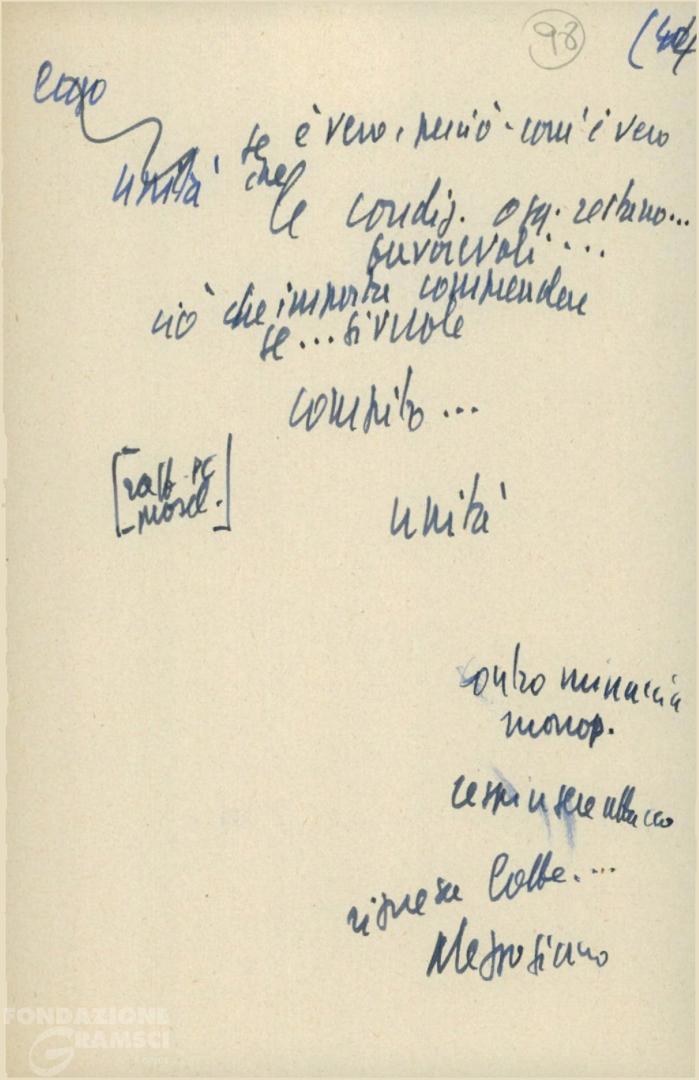 98
unità
se è vero, perciò - com'è vero
che
le condiz. ogg. restano...
favorevoli...
ciò che importa comprendere
se... si vuole
compito...
[raff. PC
unità
contro minaccia
monop.
respingere attacco
ripresa lotte....
Mezzogiorno
FONDAZIONE
GRAMSCI